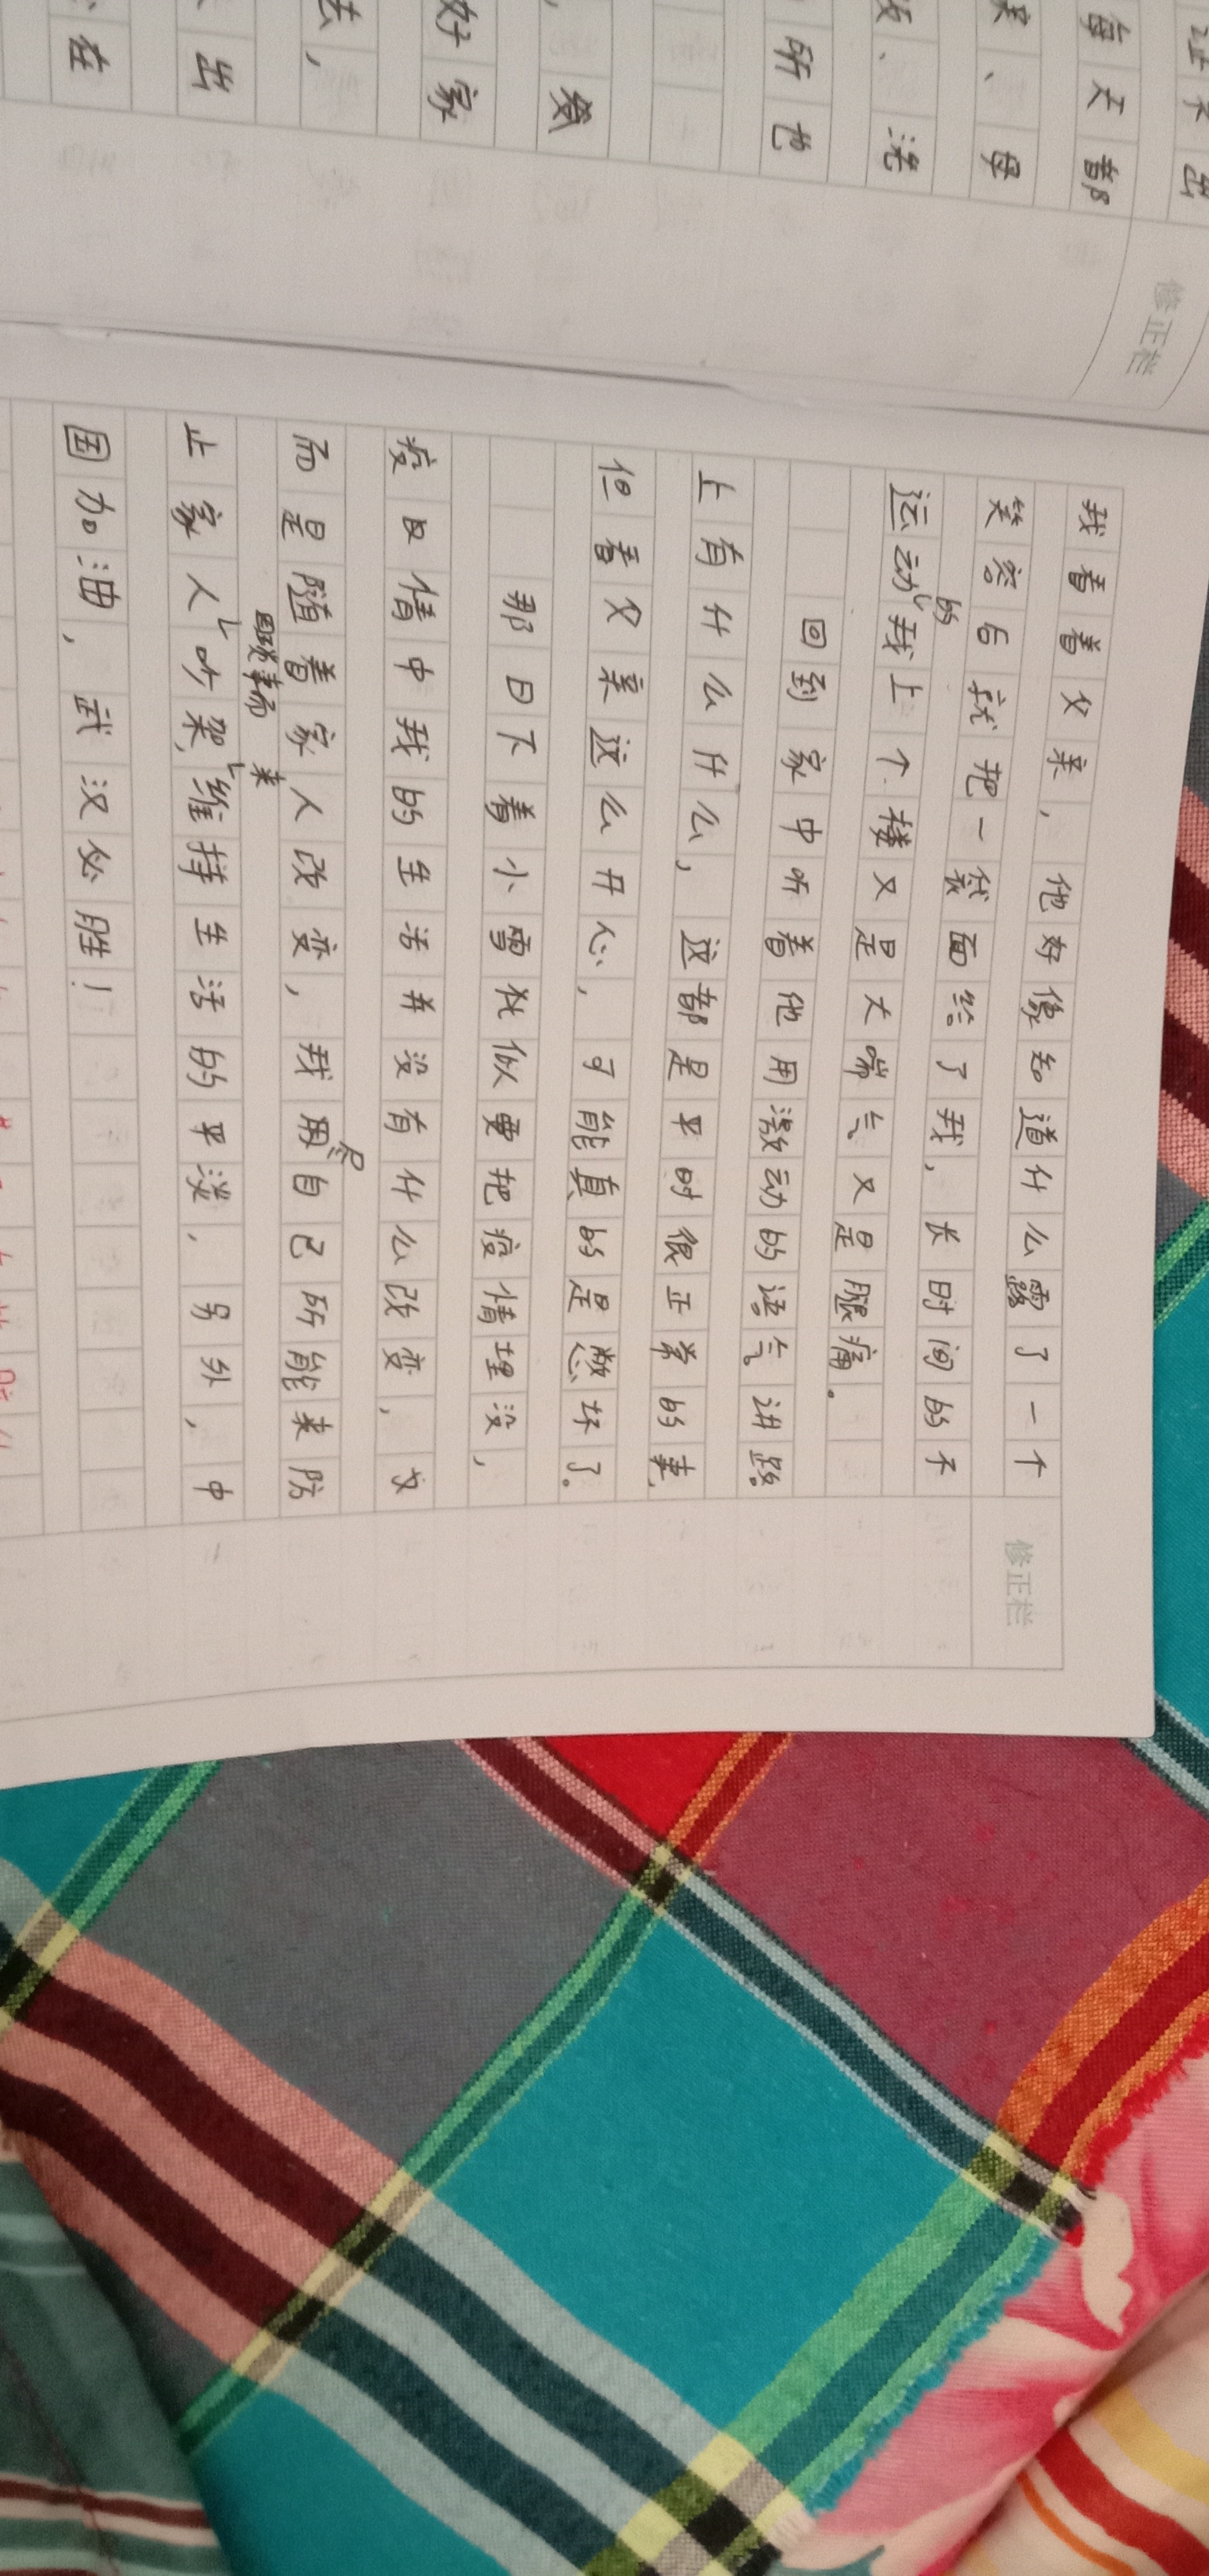 出
每天都
、母
、洗
所也
发
好家
去，
出
在
修正栏
我看着父亲，他好像知道什么露了一个
笑容后就把一袋面给了我，长时间的不
运动的我上个楼又是大喘气又是腿痛。
回到家中听着他用激动的语气讲路
上有什么什么，这都是平时很正常的事，
但看父亲这么开心，可能真的是憋坏了。
那日下着小雪犹似要把疫情埋没，
疫情中我的生活并没有什么改变，
而是随着家人改变，我用尽自己所能来防
止家人因琐事而吵架，来维持生活的平淡．另外，中
国加油，武汉必胜！
修正栏